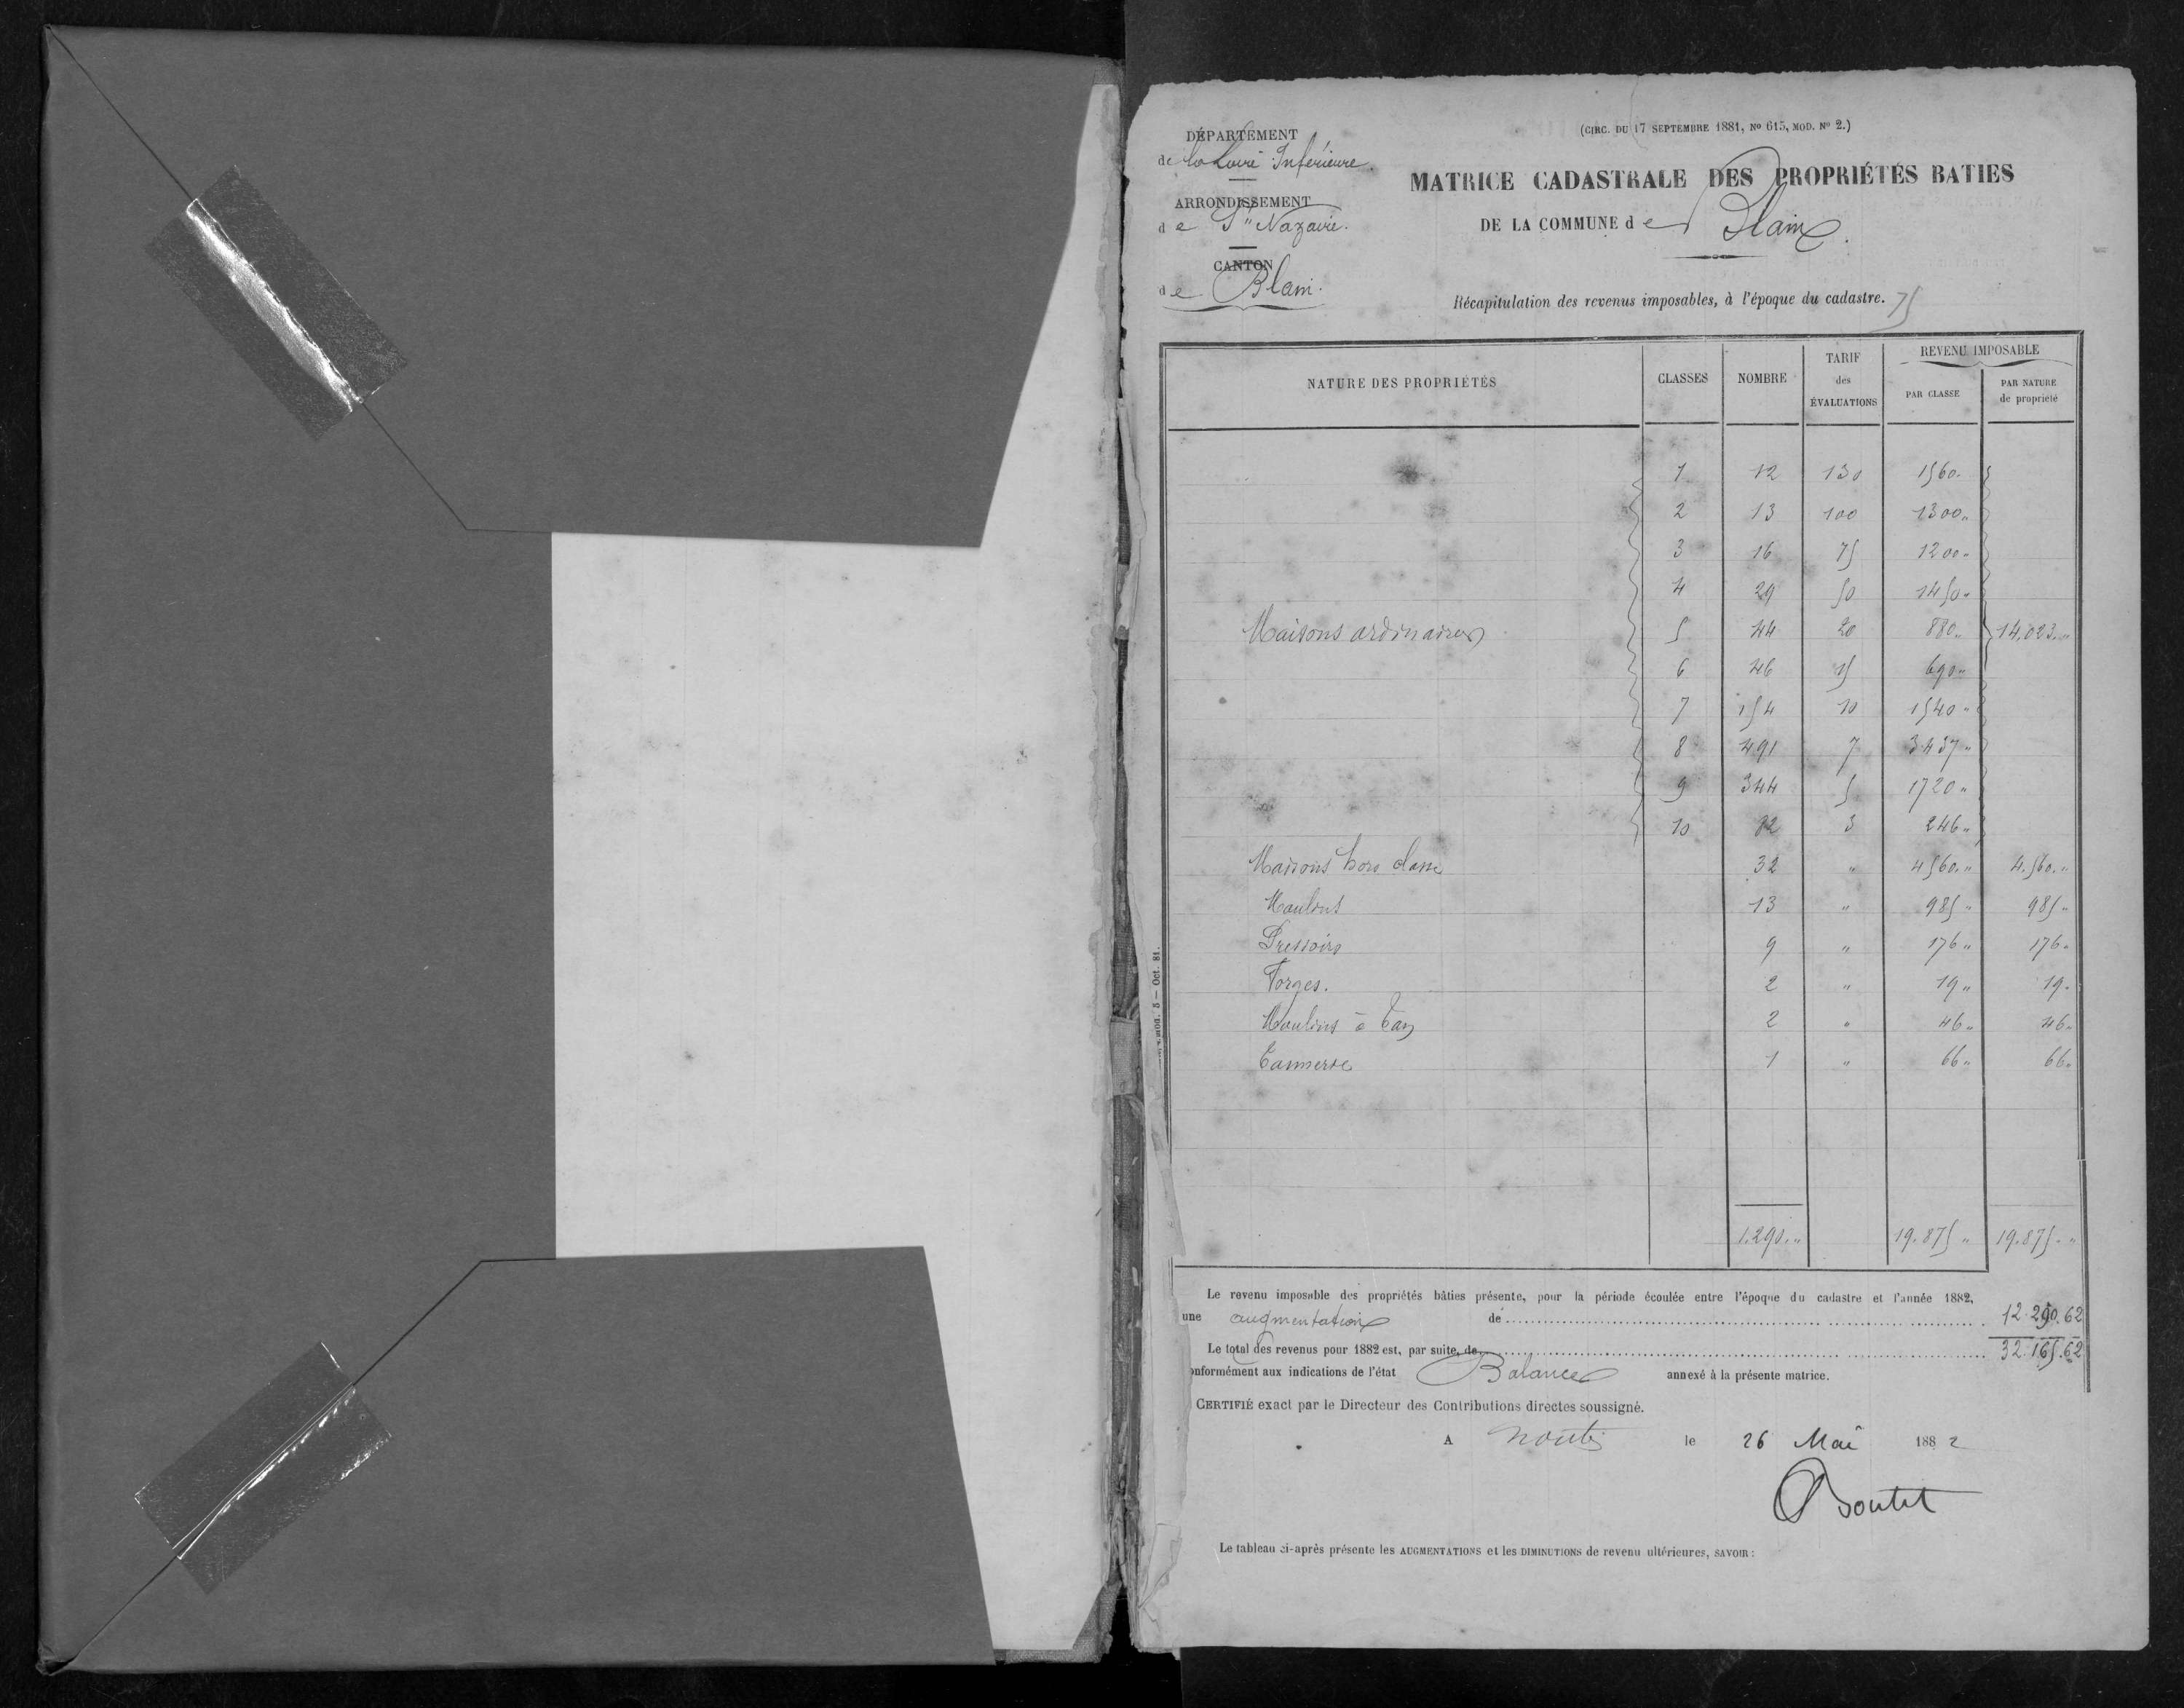 DÉPARTEMENT
de la Loire Inférieure.
ARRONDISSEMENT
de St Nazaire.
CANTON
de Blain.
(CIRC. DU 17 SEPTEMBRE 1881, No 615, MOD. No 2.)
MATRICE CADASTRALE DES PROPRIÉTÉS BATIES
DE LA COMMUNE de Blain.
Récapitulation des revenus imposables, à l'époque du cadastre. 75
NATURE DES PROPRIÉTÉS CLASSES NOMBRE TARIF des ÉVALUATIONS REVENU IMPOSABLE
PAR CLASSE PAR NATURE de propriété
1 12 130 1560.
2 13 100 1300 "
3 16 75 1200 "
4 29 50 1450 "
Maisons ordinaires 5 44 20 880 " 14,023. "
6 46 15 690 "
7 154 10 1540 "
8 491 7 3437 "
9 344 5 1720 "
10 82 3 246 "
Maisons hors classe 32 " 4560. " 4.560. "
Moulins 13 " 985 " 985 "
Pressoirs 9 " 176 " 176 "
Forges. 2 " 19 " 19 "
Moulins à Tan 2 " 46 " 46 "
Tannerie 1 " 66 " 66 "
1.290. " 19.875 " 19.875. "
Le revenu imposable des propriétés bâties présente, pour la période écoulée entre l'époque du cadastre et l'année 1882,
une augmentation de 12.290.62
Le total des revenus pour 1882 est, par suite, de 32.165.62
onformément aux indications de l'état Balance annexé à la présente matrice.
CERTIFIÉ exact par le Directeur des Contributions directes soussigné.
A Nantes le 26 Mai 1882
Boutet
Le tableau ci-après présente les AUGMENTATIONS et les DIMINUTIONS de revenu ultérieures, SAVOIR :
mod. 5 — Oct. 81.